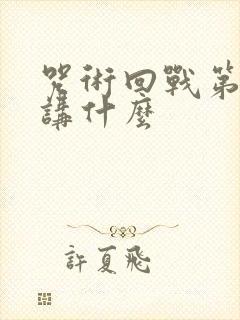 咒術回戰第
講什麼
許夏飛